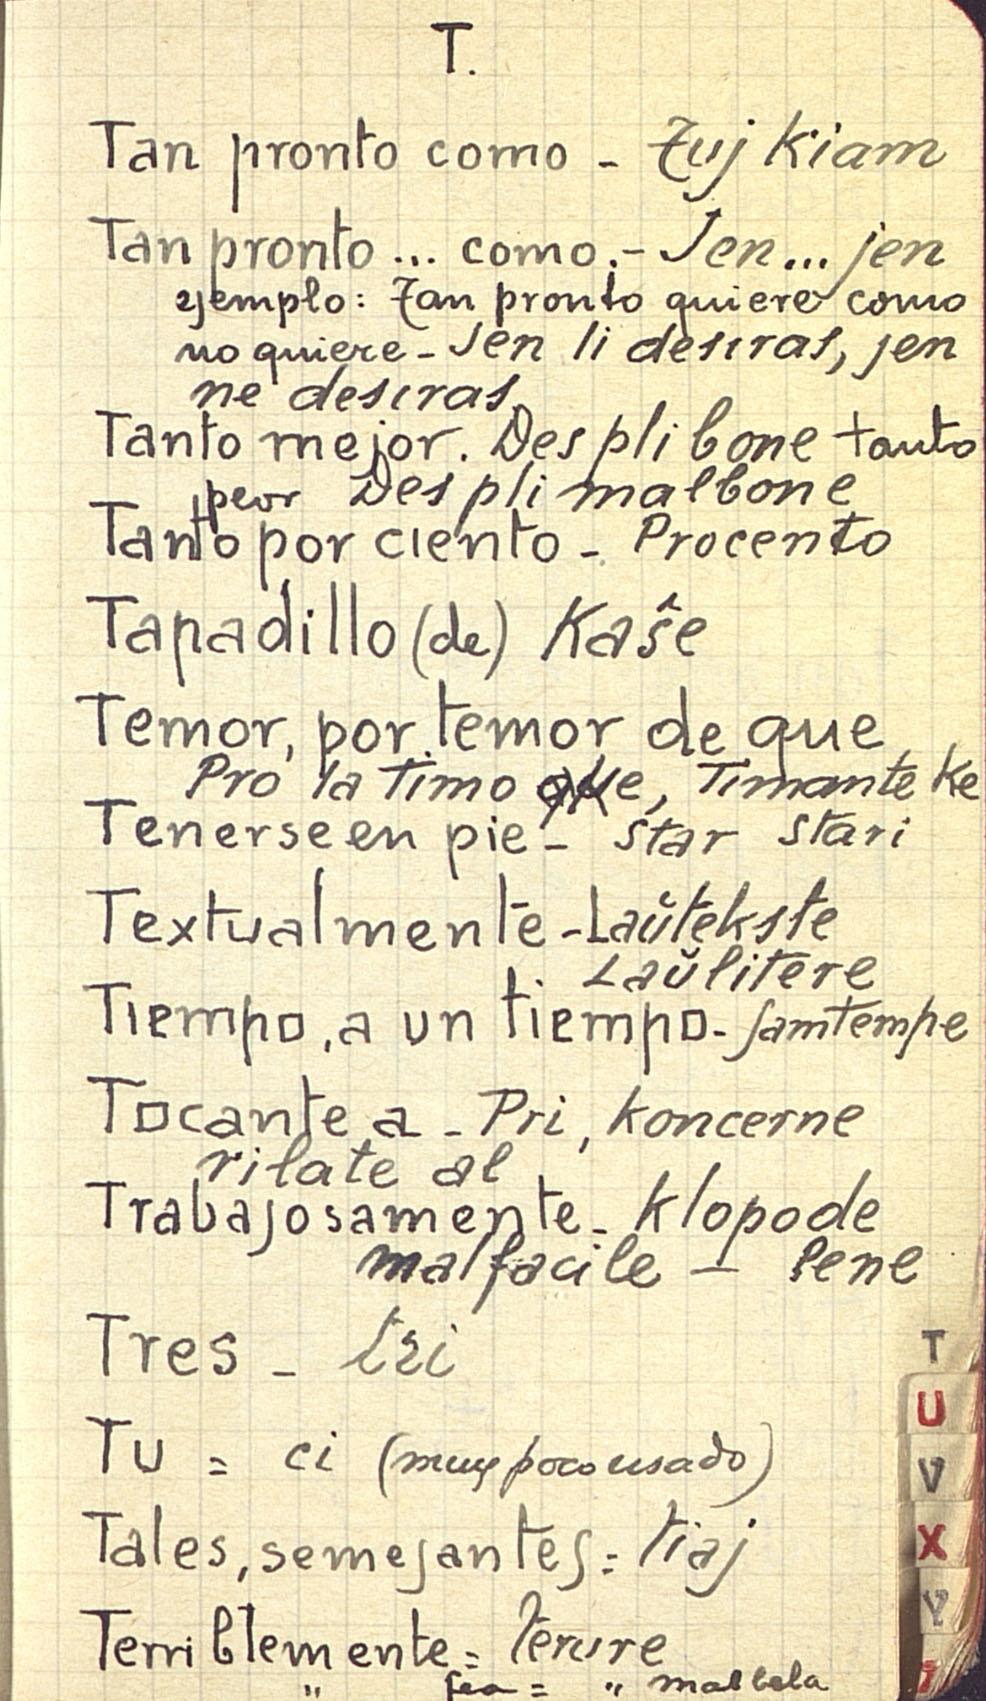 T.
Tan pronto como - Tuj kiam
Tan pronto... como.- Jen... jen
ejemplo: Tan pronto quiere como
no quiere - Jen li desiras, jen
ne desiras
Tanto mejor. Des pli bone tanto
peor Des pli malbone
Tanto por ciento - Procento
Tapadillo (de) Kaŝe
Temor, por temor de que
Pro la timo ke, Timante ke
Tenerse en pie - star stari
Textualmente - Laŭtekste
Laŭlitere
Tiempo, a un tiempo - samtempe
Tocante a - Pri, koncerne
rilate al
Trabajosamente - klopode
malfacile - pene
Tres - tri
Tu = ci (muy poco usado)
Tales, semejantes = tiaj
Terriblemente = Terure
" fea = " malbela
T
U
V
X
Y